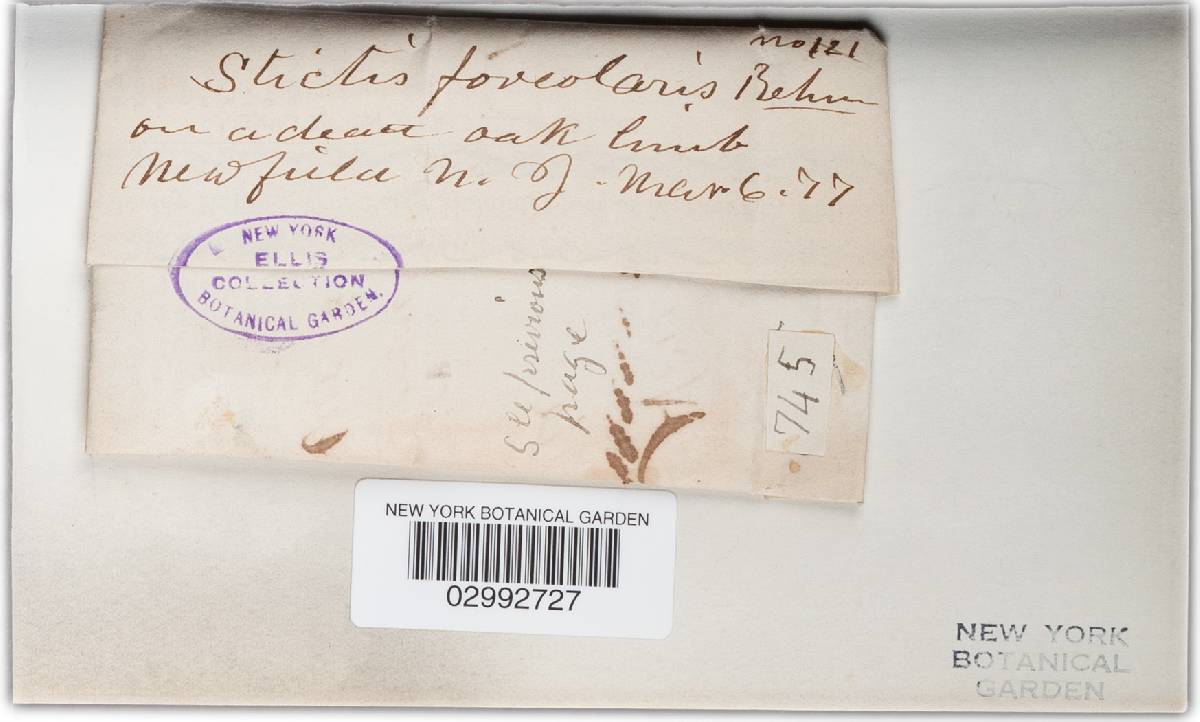 no 121
Stictis foveolaris Rehm
on a dead oak limb
Newfield N. J. Mar 6. 77
NEW YORK
ELLIS
COLLECTION
BOTANICAL GARDEN.
See previous
page
745
NEW YORK BOTANICAL GARDEN
02992727
NEW YORK
BOTANICAL
GARDEN